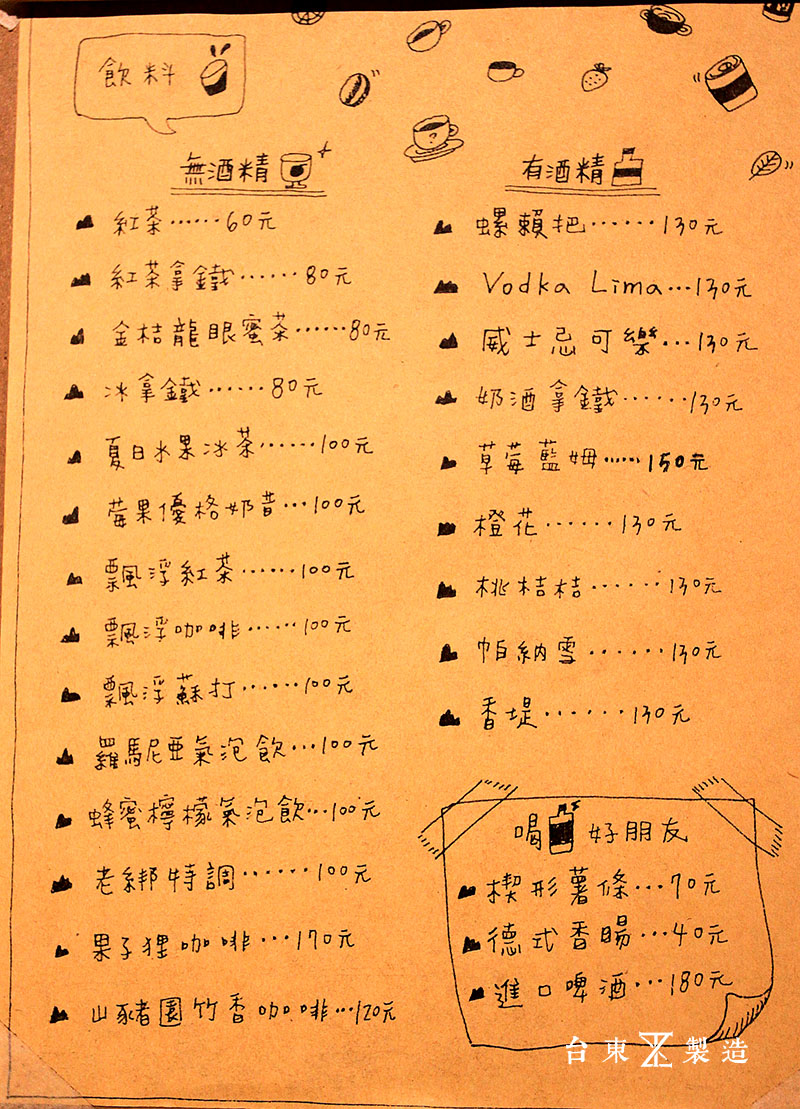 飲料
無酒精
紅茶……60元
紅茶拿鐵……80元
金桔龍眼蜜茶……80元
冰拿鐵……80元
夏日水果冰茶……100元
莓果優格奶昔…100元
飄浮紅茶……100元
飄浮咖啡……100元
飄浮蘇打……100元
羅馬尼亞氣泡飲…100元
蜂蜜檸檬氣泡飲…100元
老綁特調……100元
果子狸咖啡…170元
山豬園竹香咖啡…120元
有酒精
螺賴把……130元
Vodka Lima…130元
威士忌可樂…130元
奶酒拿鐵……130元
草莓藍姆……150元
橙花……130元
桃桔桔……130元
帕納雪……130元
香堤……130元
喝 好朋友
楔形薯條…70元
德式香腸…40元
進口啤酒…180元
台東製造